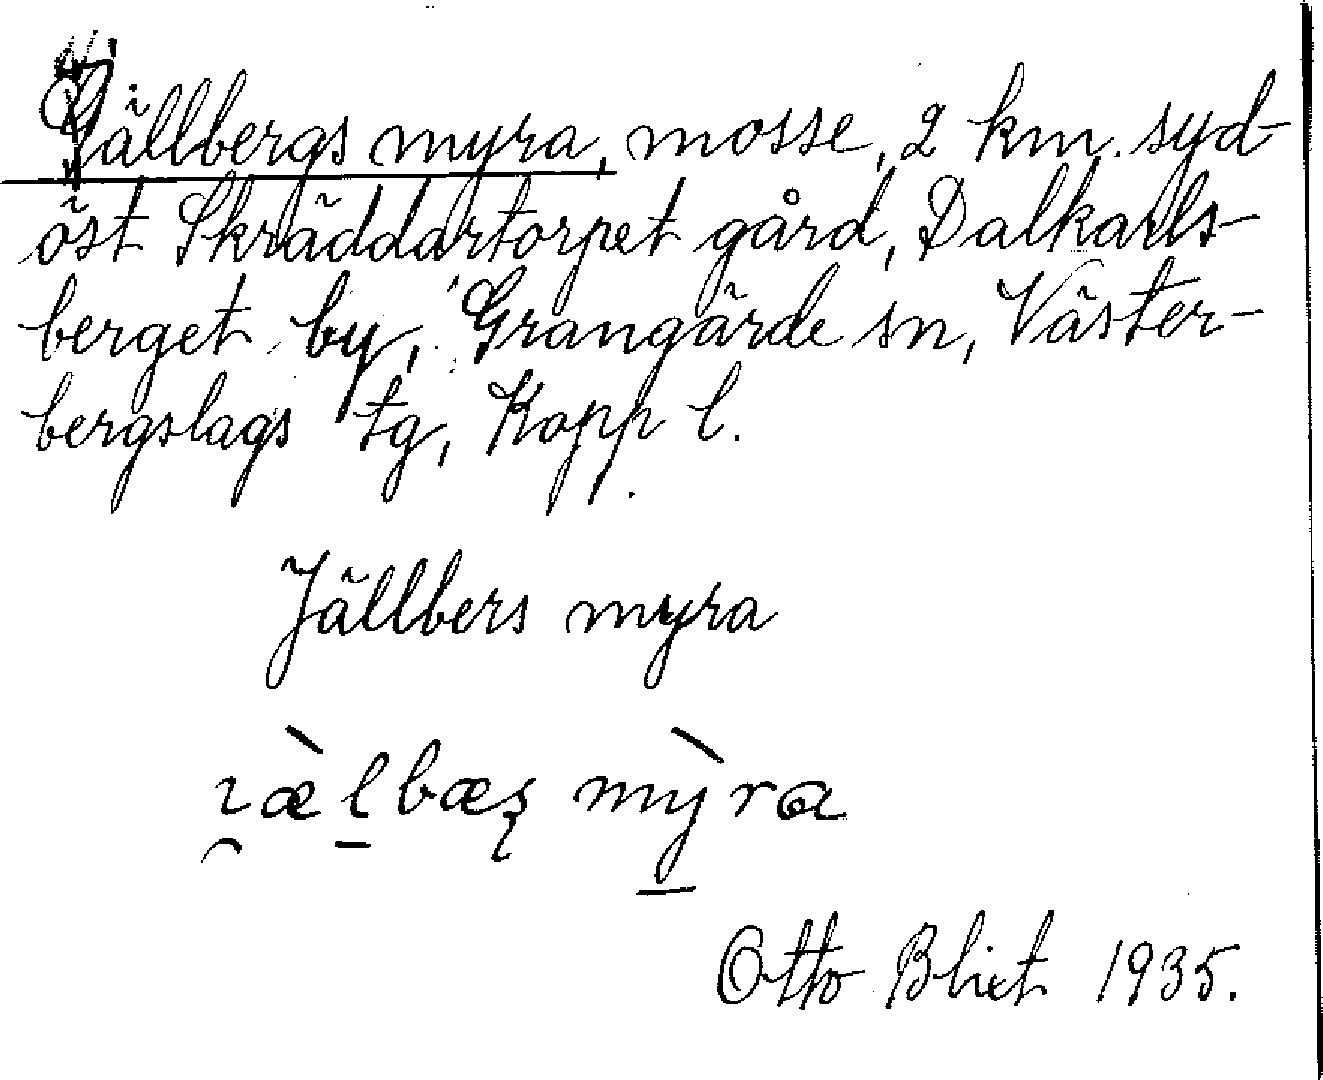 Jällbergs myra, mosse, 2 km. syd-
öst Skräddartorpet gård, Dalkarls-
berget by, Grangärde sn, Väster-
bergslags tg, Kopp l.
Jällbers myra
ı̯æ̀l̠bæʂ mỳ̠ra
Otto Blixt 1935.